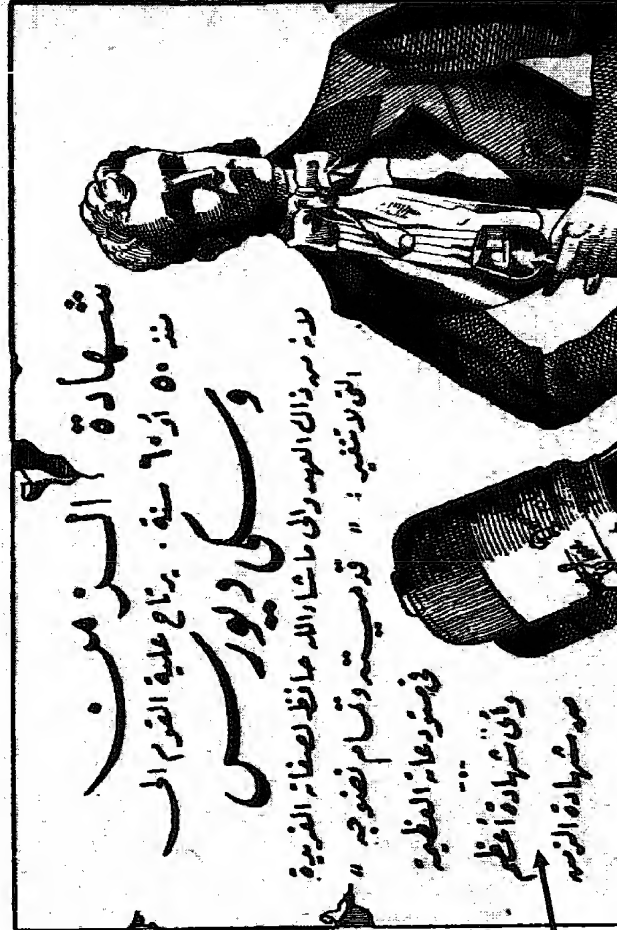 شهادة الزمن
منذ ٥٠ أو ٦٠ سنة . يرتاح علية القوم الى
وسكي ديورس
لانه من ذاك العهد والى ما شاء الله حافظ لصفاته الفريدة
التي لا تتغير : " قدميته وتمام نضوجه "
في مستودعاته العظيمة
وأي شهادة أعظم
من شهادة الزمن